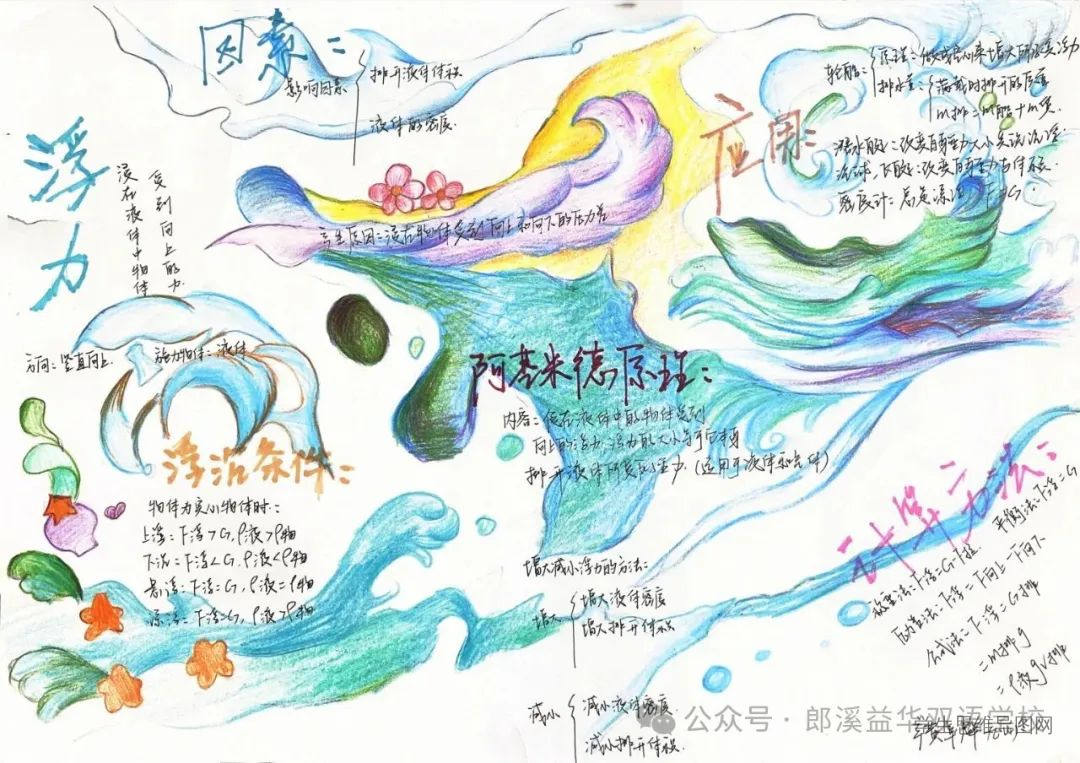 浮力
浸在液体中物体
受到向上的力
方向：竖直向上
施力物体：液体
因素：
影响因素
排开液体体积
液体的密度
产生原因：浸在物体受到向上和向下的压力差
应用：
轮船：
原理：做成空心来增大可利用浮力
排水量：
满载时排开的质量
m排=m船+m货
潜水艇：改变自重
密度计：总是漂浮 F浮=G
阿基米德原理：
内容：浸在液体中的物体受到
向上的浮力，浮力的大小等于它
排开液体所受的重力（适用于液体和气体）
浮沉条件：
物体为实心物体时：
上浮：F浮>G，ρ液>ρ物
下沉：F浮<G，ρ液<ρ物
悬浮：F浮=G，ρ液=ρ物
漂浮：F浮=G，ρ液>ρ物
增大减小浮力的方法：
增大
增大液体密度
增大排开体积
减小
减小液体密度
减小排开体积
计算方法：
称重法：F浮=G-F拉
平衡法：F浮=G
压力差法：F浮=F向上-F向下
公式法：F浮=G排
=m排g
=ρ液gV排
公众号·郎溪益华双语学校
思维导图网